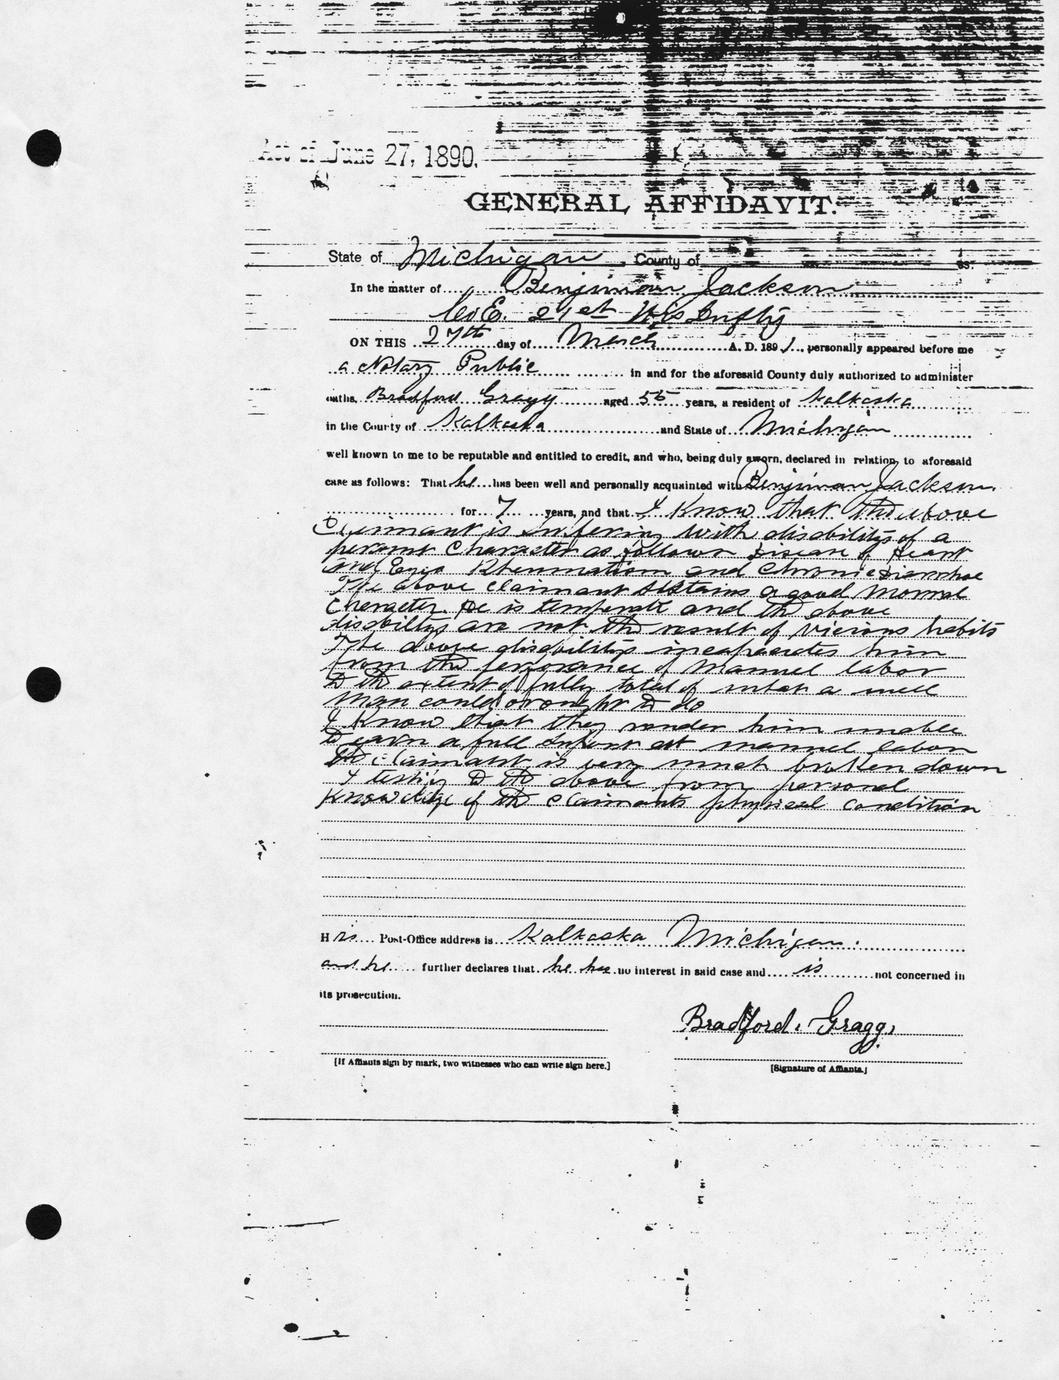 Act of June 27, 1890.
GENERAL AFFIDAVIT.
State of Michigan, County of ss.
In the matter of Benjiman Jackson
Co E. 21st Wis Infty
ON THIS 27th day of March A. D. 1891, personally appeared before me
a Notary Public in and for the aforesaid County duly authorized to administer
oaths, Bradford Gragg aged 55 years, a resident of Kalkaska
in the County of Kalkaska and State of Michigan
well known to me to be reputable and entitled to credit, and who, being duly sworn, declared in relation to aforesaid
case as follows: That he has been well and personally acquainted with Benjiman Jackson
for 7 years, and that I Know that the above
Claimant is suffering with disabilitys of a
character as follows Disease of Heart
and Eyes Rheumatism and Chronic Diarrhoe
The above claimant sustains a good
Character. He is temperate and the above
disabiltys are not the result of vicious habits
The above disabilitys incapacates him
from the of manuel labor
to the extent of fully total of what a well
man could or ought to do
I Know that they render him unable
to earn a full suport at manuel labor
the claimant is very much broken down
I testify to the above from personal
Knowledge of the claimants physical condition
His Post-Office address is Kalkaska Michigan.
and he further declares that he has no interest in said case and is not concerned in
its prosecution.
Bradford. Gragg.
[If Affiants sign by mark, two witnesses who can write sign here.]
[Signature of Affiants.]